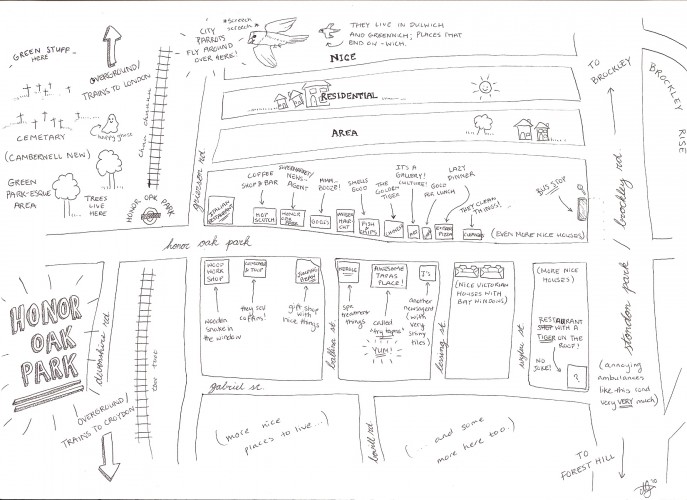 GREEN STUFF
HERE
OVERGROUND/
TRAINS TO LONDON
CEMETARY
(CAMBERWELL NEW)
happy ghost
GREEN
PARK-ESQUE
AREA
TREES
LIVE
HERE
HONOR OAK PARK
CITY
PARROTS
FLY AROUND
OVER HERE!
*SCREECH
SCREECH*
THEY LIVE IN DULWICH
AND GREENWICH; PLACES THAT
END ON -WICH.
NICE
RESIDENTIAL
AREA
TO
BROCKLEY
BROCKLEY
RISE
brockley rd.
stondon park /
BUS STOP
(EVEN MORE NICE HOUSES)
honor oak park
ITALIAN
RESTAURANT
COFFEE
SHOP & BAR
HOP
SCOTCH
SUPERMARKET/
NEWS-
AGENT
HONOR
OAK
MMM...
BOOZE!
ODDIS
SMELLS
GOOD
FISH
CHIPS
THE
GOLDEN
TIGER
IT'S A
GALLERY!
CULTURE!
GOOD
FOR LUNCH
LAZY
DINNER
PIZZA
THEY CLEAN
THINGS!
WOOD
WORK
SHOP
wooden
snake in
the window
they sell
coffins!
gift shop
with
nice things
spa
treatment
things
AWESOME
TAPAS
PLACE!
called
YUM!
J'S
another
newsagent
(with
very
shiny
tiles)
(NICE VICTORIAN
HOUSES WITH
BAY WINDOWS)
(MORE NICE
HOUSES)
RESTAURANT
WITH A
TIGER ON
THE
ROOF!
NO
JOKE!
?
(annoying
ambulances
like this road
very VERY much)
HONOR
OAK
PARK
devonshire rd.
gabriel st.
OVERGROUND/
TRAINS TO CROYDON
(more nice
places to live...)
(... and some
more here too.)
TO
FOREST HILL